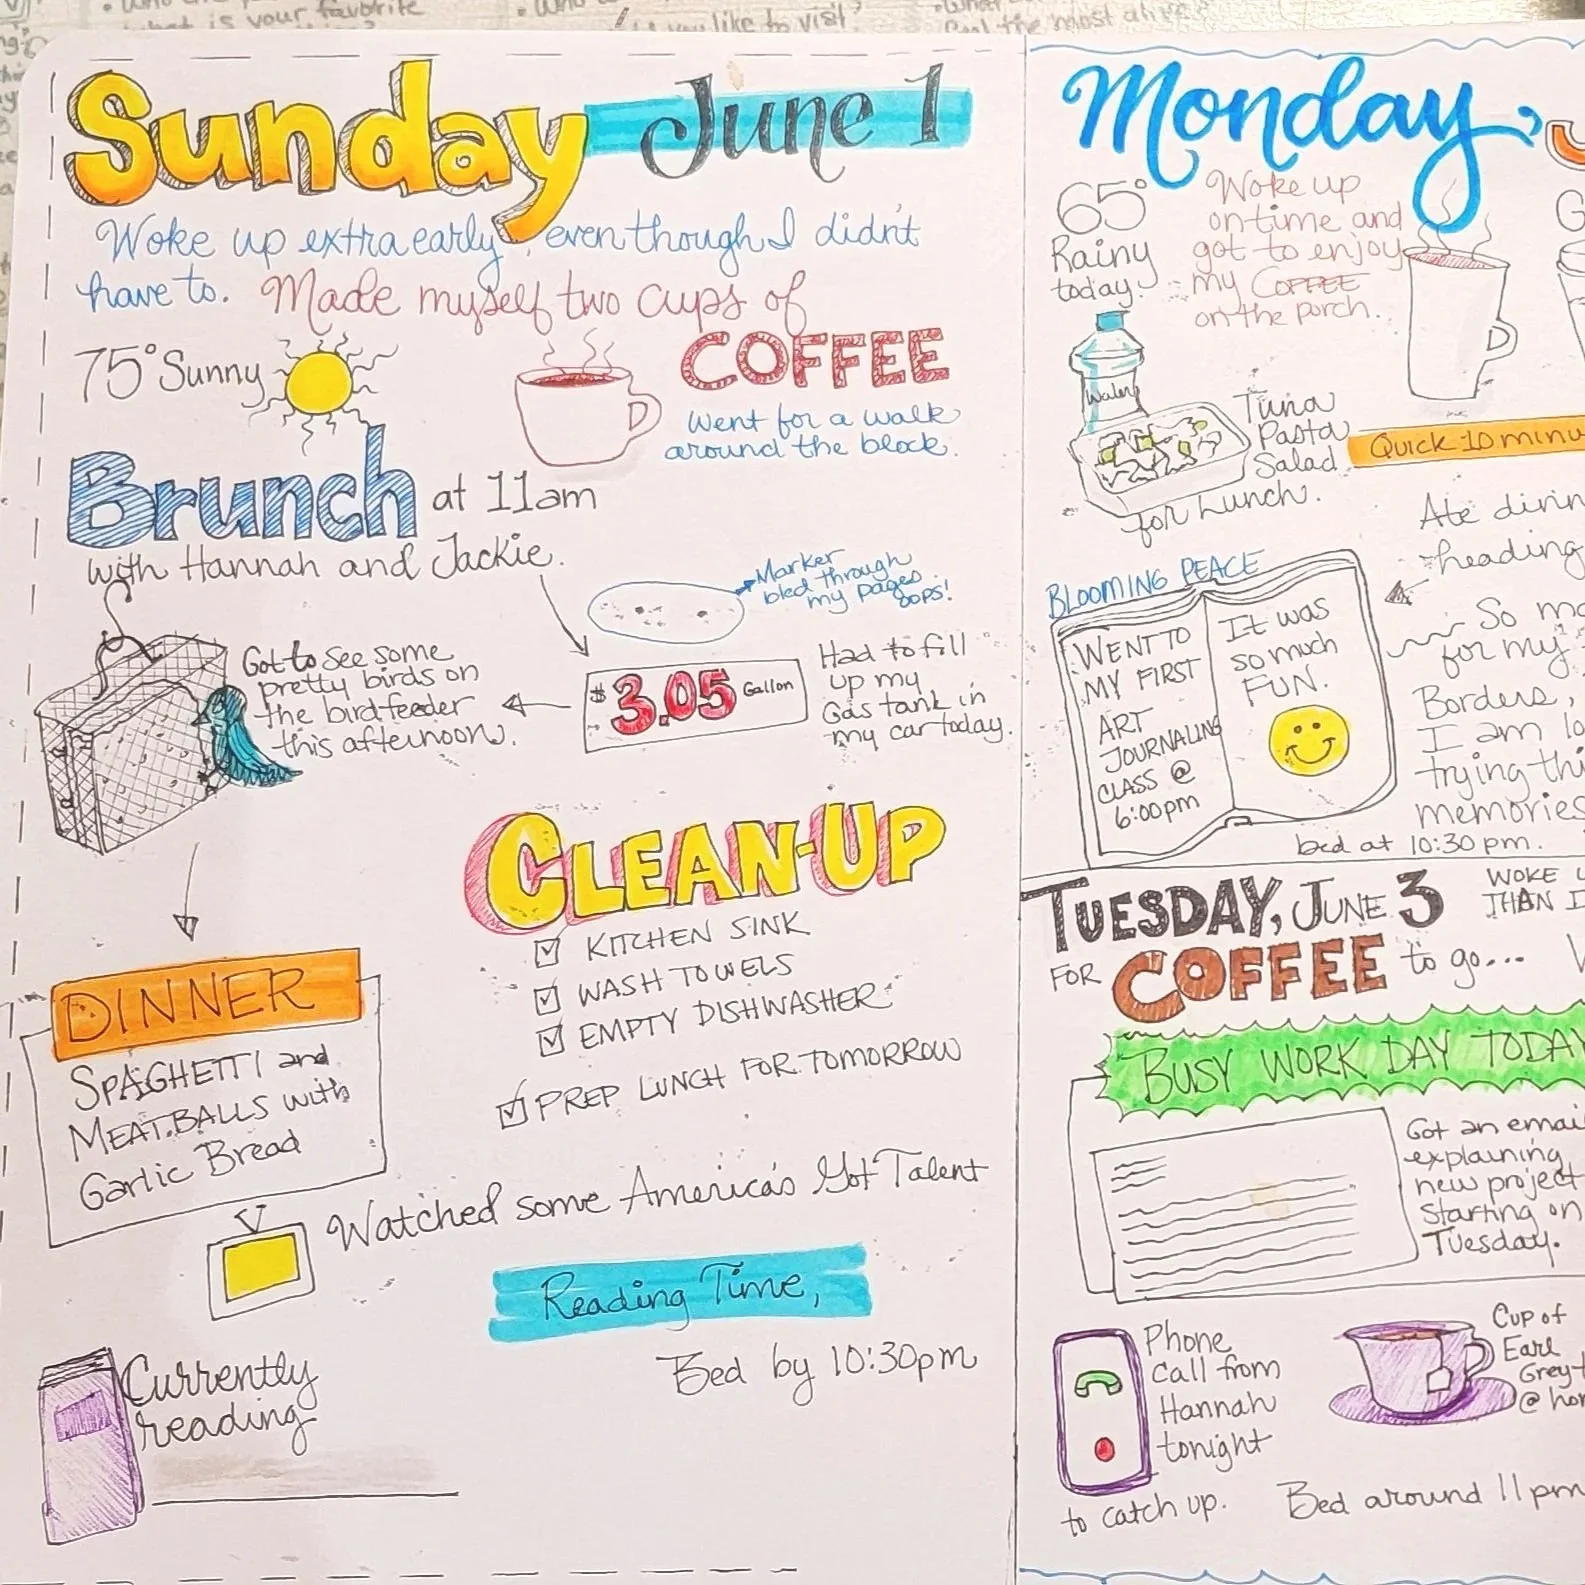 Sunday June 1
Woke up extra early, even though I didn't
have to. Made myself two cups of
COFFEE
75° Sunny
Went for a walk
around the block.
Brunch at 11am
with Hannah and Jackie.
Marker
bled through
my pages
oops!
Got to see some
pretty birds on
the birdfeeder
this afternoon.
$ 3.05 Gallon
Had to fill
up my
Gas tank in
my car today.
CLEAN-UP
KITCHEN SINK
WASH TOWELS
EMPTY DISHWASHER
PREP LUNCH FOR TOMORROW
DINNER
SPAGHETTI and
MEATBALLS with
Garlic Bread
Watched some America's Got Talent
Reading Time,
Bed by 10:30pm
Currently
reading
Monday,
65°
Rainy
today.
Woke up
on time and
got to enjoy
my COFFEE
on the porch.
Water
Tuna
Pasta
Salad
for Lunch.
Quick 10 minu
Ate dinn
heading
BLOOMING PEACE
WENT TO
MY FIRST
ART
JOURNALING
CLASS @
6:00pm
It was
so much
FUN.
So mo
for my
Borders,
I am lo
trying thi
memories
bed at 10:30pm.
TUESDAY, JUNE 3
WOKE U
THAN I
FOR COFFEE to go...
BUSY WORK DAY TODAY
Got an email
explaining
new project
Starting on
Tuesday.
Phone
Call from
Hannah
tonight
to catch up.
Cup of
Earl
Grey t
@ ho
Bed around 11pm
what is your favorite
you like to visit?
feel the most alive?